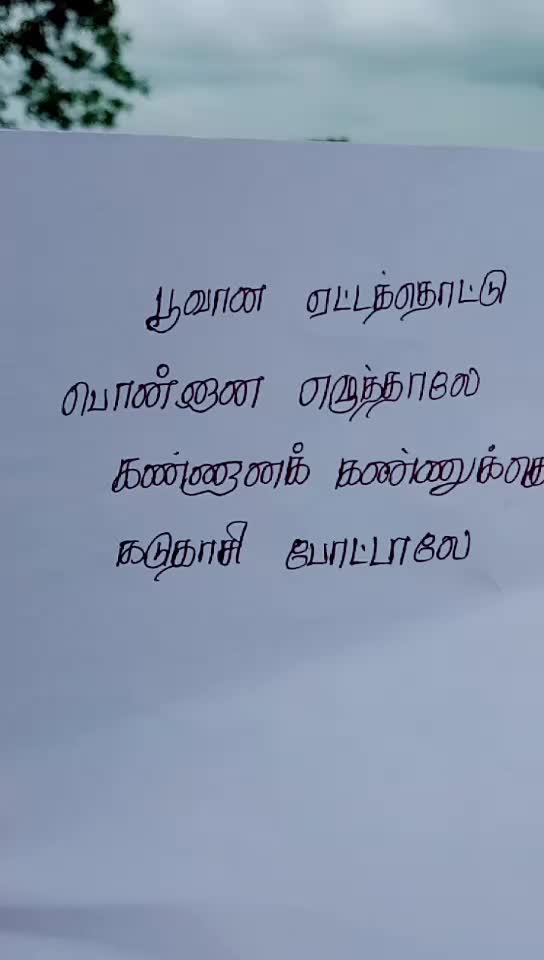 பூவான ஏட்டத்தொட்டு
பொன்னான எழுத்தாலே
கண்ணானக் கண்ணுக்கு
கடுதாசி போட்டாலே